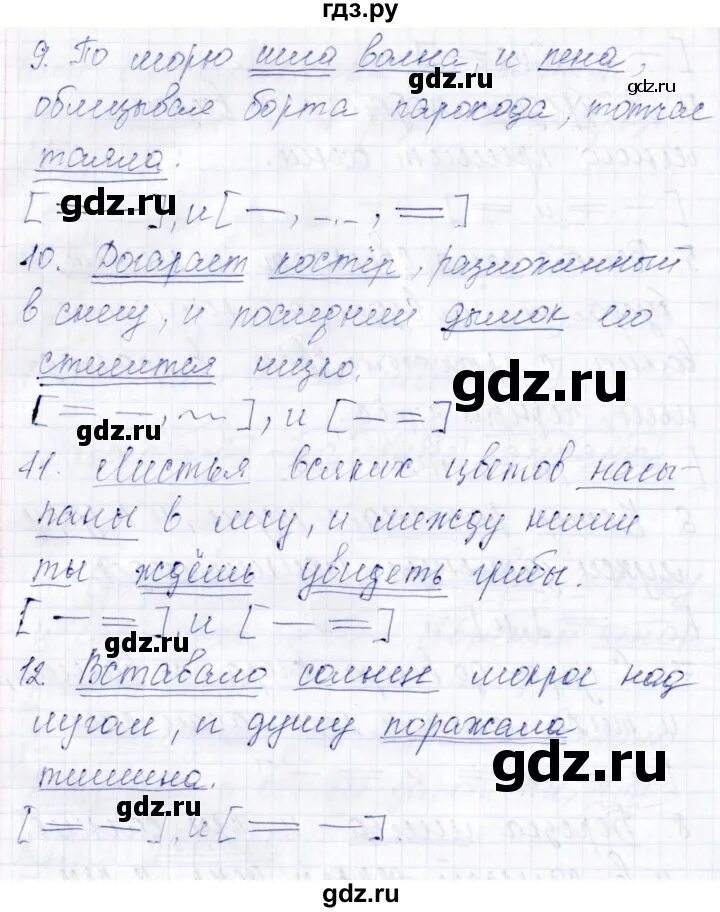 гдз.ру
9. По морю шла волна, и пена,
gdz.ru
gdz.ru
облизывая борта парохода, тотчас
таяла.
gdz.ru
[= —], и [—, _._ , =]
10. Догорает костёр, разложенный
в снегу, и последний дымок его
стелется низко.
gdz.ru
[= —, ~~], и [— =]
gdz.ru
11. Листья всяких цветов насы-
паны в лесу, и между ними
ты ждёшь увидеть грибы.
[— =], и [— =]
gdz.ru
12. Вставало солнце мокрое над
лугом, и душу поражала
тишина.
gdz.ru
gdz.ru
[= —], и [= —].
gdz.ru